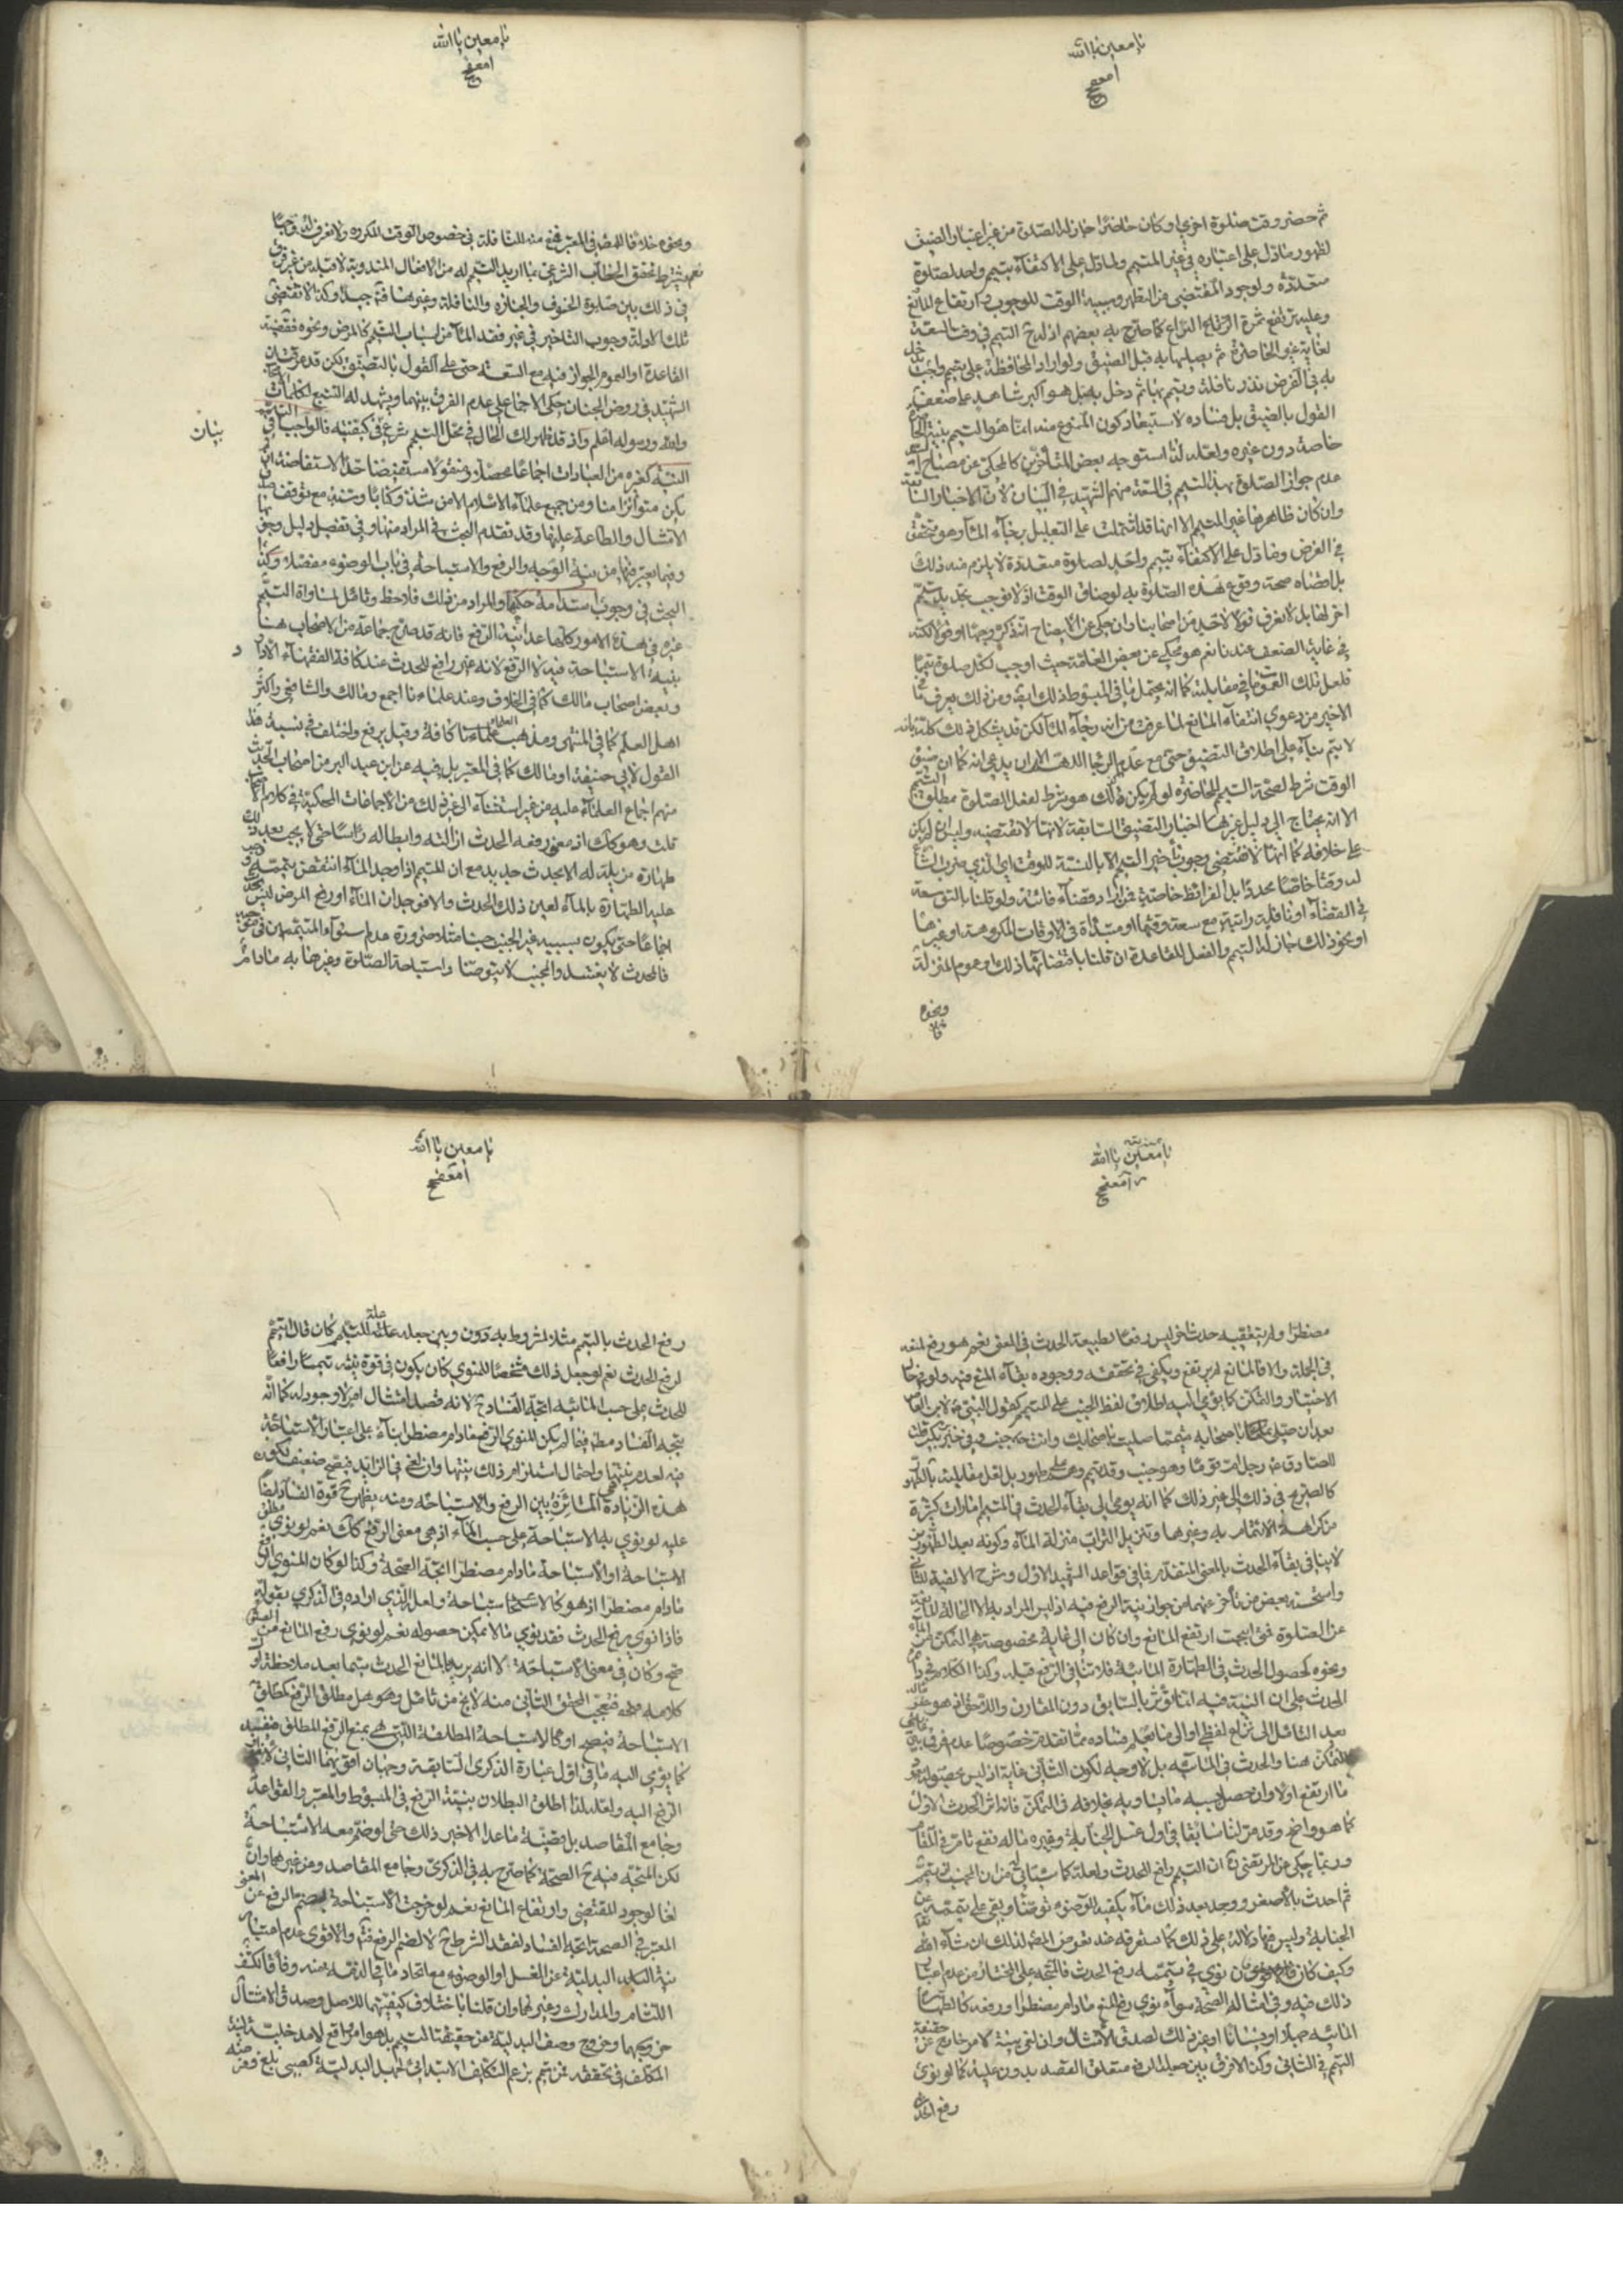 يا معين يا الله
ثم حضر وقت صلوة اخرى او كان حاضرًا جاز له الصلوة من غير اعتبار الضيق
لظهور ما دل على اعتباره في غير المتيمم ولما دل على الاكتفاء بتيمم واحد لصلوة
متعددة ولوجود المقتضى من التطهر وسببية الوقت للوجوب وارتفاع المانع
لغاية غير الحاضرة ثم يصليها به قبل الضيق ولو اراد المحافظة على تيمم واجب
به في الفرض نذر نافلة وتيمم لها ثم دخل به بل هو اكبر شاهد على ضعف
القول بالضيق بل فساده لاستبعاد كون الممنوع منه انما هو التيمم بنية
خاصة دون غيره ولعله لذا استوجه بعض المتأخرين كالمحكى عن مصباح
عدم جواز الصلوة بهذا التيمم في السعة منهم الشهيد في البيان لان الاخبار
وان كان ظاهرها غير المتيمم الا انها قد اشتملت على التعليل برجاء الماء وهو متحقق
في الفرض وما دل على الاكتفاء بتيمم واحد لصلوة متعددة لا يلزم منه ذلك
بل اقصاه صحة وقوع هذه الصلوة به لو صادف الوقت اذ لا نوجب تجديد تيمم
اخر لها بل لا نعرف قولا لاحد من اصحابنا وان حكى عن الايضاح انه ذكره وجها او قولا لكنه
في غاية الضعف عندنا نعم هو محكي عن بعض العامة حيث اوجب لكل صلوة تيمما
الاخير من دعوى انتفاء المانع لما عرفت من انه رجاء الماء لكن قد يشكل ذلك كله بانه
لا يتم بناء على اطلاق التضيق حتى مع عدم الرجاء اللهم الا ان يدعى انه كما ان ضيق
الوقت شرط لصحة التيمم للحاضرة لو لم يكن فكذلك هو شرط لفعل الصلوة بمطلق التيمم
الا انه يحتاج الى دليل غير اخبار التضيق السابقة لانها لا تقتضيه
على خلافه كما انها لا تقتضى وجوب تأخير التيمم الا بالنسبة للوقت اي الذي ضرب الشارع
له وقتا خاصا محددا بل الفرائض خاصة فمن اراد قضاء فائتة ولو قلنا بالتوسعة
في القضاء او نافلة راتبة مع سعة وقتها او مبتدأة في الاوقات المكروهة او غيرها
او نحو ذلك جاز له التيمم والفعل للقاعدة ان قلنا باقتضائها ذلك وعموم المنزلة
ونحوه
يا معين يا الله
ونحوه خلافا للمص في المعتبر فمنع منه للنافلة في خصوص الوقت المكروه ولا نعرف له وجها
نعم يشترط تحقق الخطاب الشرعي بما اريد التيمم له من الافعال المندوبة لا قبله من غير فرق
في ذلك بين صلوة الخسوف والجنازة والنافلة وغيرها فتأمل جيدا وكذا لا تقتضى
تلك الادلة وجوب التاخير في غير فقد الماء من اسباب التيمم كالمرض ونحوه فقضية
القاعدة او العموم الجواز فيه مع السعة حتى على القول بالتضيق لكن قد عرفت ان
الشهيد في روض الجنان حكى الاجماع على عدم الفرق بينهما ويشهد له التتبع لكلمات الاصحاب
والله ورسوله اعلم واذ قد ظهر لك الحال في محل التيمم شرع في كيفيته فالواجب في التيمم
بيان
النية كغيره من العبادات اجماعا محصلا ومنقولا مستفيضا حد الاستفاضة ان لم
يكن متواترا منا ومن جميع علماء الاسلام الا من شذ وكتابا وسنة مع توقف صدق
الامتثال والطاعة عليها وقد تقدم البحث في المراد منها وفي تفصيل دليل وجوبها
وفيما يعتبر فيها من نية الوجه والرفع والاستباحة في باب الوضوء مفصلا وكذا
البحث في وجوب استدامة حكمها والمراد من ذلك فلاحظ وتأمل لمساواة التيمم
غيره في هذه الامور كلها عدا نية الرفع فانه قد صرح جماعة من الاصحاب هنا
بنية الاستباحة فيه لا الرفع لانه غير رافع للحدث عند كافة الفقهاء الا داود
وبعض اصحاب مالك كما في الخلاف وعند علماءنا اجمع ومالك والشافعي واكثر
اهل العلم كما في المنتهى ومذهب العلماء كافة وقيل يرفع واختلف في نسبة هذا
القول لابي حنيفة او مالك كما في المعتبر بل فيه عن ابن عبد البر من اصحاب الحديث
منهم اجماع العلماء عليه من غير استثناء الى غير ذلك من الاجماعات المحكية في كلام الاصحاب
قلت وهو كك اذ معنى رفعه الحدث ازالته وابطاله رأسا حتى لا يجب بعد ذلك
طهارة مزيلة له الا بحدث جديد مع ان المتيمم اذا وجد الماء انتقض تيممه ووجب
عليه الطهارة بالماء لعين ذلك الحدث والا فوجدان الماء او رفع المرض ليس بحدث
اجماعا حتى يكون بسببه غير الجنب جنبا مثلا ضرورة عدم استواء المتيممين في موجبه
فالمحدث لا يغتسل والمجنب لا يتوضأ واستباحة الصلوة وغيرها به ما دام
يا معين يا الله
مضطرا ولم يتعقبه حدث اخر ليس رفعا لطبيعة الحدث في المعنى نعم هو رفع لمنعه
في الجملة والا فالمانع لم يرتفع ويكفى في تحققه ووجوده بقاء المنع فيه ولو في حال
الاختيار والتمكن كما يؤمي اليه اطلاق لفظ الجنب على المتيمم كقول النبي لابن العاص
بعد ان صلى باصحابه متيمما صليت باصحابك وانت جنب وفي خبر بكير قلت
للصادق رجل ام قوما وهو جنب وقد تيمم وهم على طهور بل لعل مقابلته بالطهور
كالصريح في ذلك الى غير ذلك كما انه يومى الى بقاء الحدث في المتيمم امارات كثيرة
من كراهة الائتمام به وغيرها وتنزيل التراب منزلة الماء وكونه احد الطهورين
لا ينافي بقاء الحدث بالمعنى المتقدم فما في قواعد الشهيد الاول وشرح الالفية للثاني
واستحسنه بعض من تأخر عنهما من جواز نية الرفع فيه اذ ليس المراد به الا الحالة المانعة
عن الصلوة فمتى ابيحت ارتفع المانع وان كان الى غاية مخصوصة هي التمكن من الماء
ونحوه كحصول الحدث في الطهارة المائية فلا تنافي الرفع قبله وكذا الكلام في دائم
الحدث على ان النية فيه انما تؤثر بالسابق دون المقارن واللاحق اذ هو
بعد التامل الى نزاع لفظي او الى ما يعلم فساده مما تقدم خصوصا عدم فرق بين
التمكن هنا والحدث في المائية بل لا وجه لكون الثاني غاية اذ ليس بحصوله يعود
ما ارتفع اولا وان حصل بسببه ما يساويه بخلافه في التمكن فانه اثر الحدث الاول
كما هو واضح وقد مر لنا سابقا في اول غسل الجنابة وغيره ماله نفع تام في المقام
وربما حكى عن المرتضى ان التيمم رافع الحدث ولعله كما سيأتي من ان المجنب لو تيمم
ثم احدث بالاصغر ووجد بعد ذلك ماء يكفيه للوضوء توضأ وبقى على تيممه عن
الجنابة وليس فيها دلالة على ذلك كما ستعرفه عند تعرض المص لذلك ان شاء الله
وكيف كان فلو نوى في تيممه رفع الحدث فالمتجه على المختار من عدم اعتبار
ذلك فيه وفي امثاله الصحة سواء نوى رفع المنع ما دام مضطرا او رفعه كالطهارة
المائية جهلا او نسيانا او غير ذلك لصدق الامتثال وان لغى نية الامر خارج عن حقيقة
التيمم في الثاني وكذا لا فرق بين جعله الرفع متعلق القصد بدون علية كما لو نوى
رفع الحدث
يا معين يا الله
رفع الحدث بالتيمم مثلا المشروط به دون وبين جعله علة للتيمم كأن قال اتيمم
لرفع الحدث نعم لو جعل ذلك مشخصا للمنوي كأن يكون في قوة نيته تيمما رافعا
للحدث على حسب المائية اتجه الفساد لانه قصد امتثال امر لا وجود له كما انه
يتجه الفساد مط فيما لم يكن المنوي الرفع ما دام مضطرا بناء على اعتبار الاستباحة
فيه لعدم نيتها واحتمال استلزام ذلك نيتها وان لغى في الزايد فيصح ضعيف لكون
هذه الزيادة هي المائزة بين الرفع والاستباحة ومنه يظهر قوة الفساد ايضا
عليه لو نوى به الاستباحة على حسب الماء اذ هي معنى الرفع كك نعم لو نوى مطلق
الاستباحة او الاستباحة ما دام مضطرا اتجه الصحة وكذا لو كان المنوي الرفع
ما دام مضطرا اذ هو كالاستباحة ولعل الذي اراده في الذكرى بقوله
فاذا نوى رفع الحدث فقد نوى ما لا يمكن حصوله نعم لو نوى رفع المانع من الصلوة
صح وكان في معنى الاستباحة الا انه يريد بالمانع الحدث سيما بعد ملاحظة اول
كلامه فتعجب المحقق الثاني منه لا يخ من تأمل وهو هل مطلق الرفع كمطلق
الاستباحة فيصح او كالاستباحة المطلقة التي هي بمعنى الرفع المطلق فتفسد
كما يؤمي اليه ما في اول عبارة الذكرى السابقة وجهان اقويهما الثاني
الرفع اليه ولعله لذا اطلق البطلان بنية الرفع في المبسوط والمعتبر والقواعد
وجامع المقاصد بل قضية ما عدا الاخير ذلك حتى لو ضم معه الاستباحة
لكن المتجه فيه الصحة كما صرح به في الذكرى وجامع المقاصد ومن غيرهما وان
لغا لوجود المقتضى وارتفاع المانع نعم لو خرجت الاستباحة بضم الرفع عن المعنى
المعتبر في الصحة اتجه الفساد لفقد الشرط لا لضم الرفع فتأمل والاقوى عدم اعتبار
نية البدلية عن الغسل او الوضوء مع اتحاد ما في الذمة منه وفاقا لكشف
اللثام والمدارك وغيرهما وان قلنا باختلاف كيفيتهما للاصل وصدق الامتثال
خروجها وخروج وصف البدلية عن حقيقة التيمم بل هو امر واقع لا مدخلية لنية
المكلف في تحققه فمن تيمم بزعم التكليف الابتدائي لجهله البدلية كصبي بلغ وفرضه